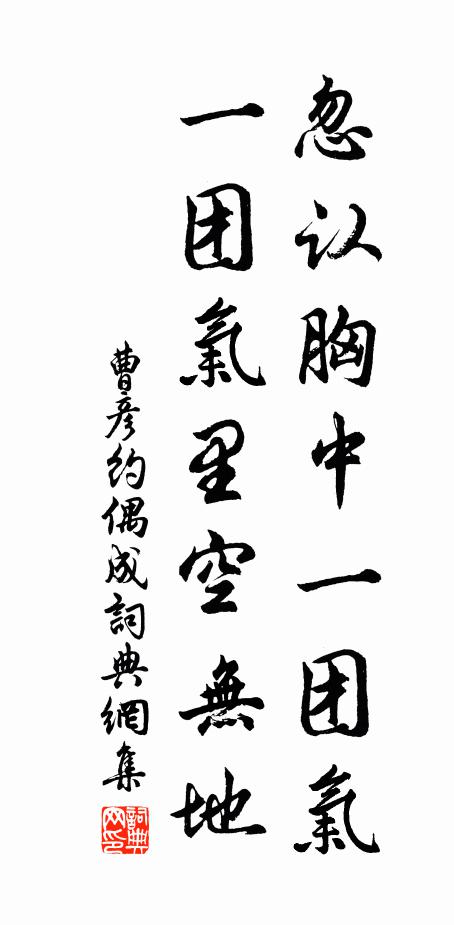 忽认胸中一团氣
一团氣里空無地
曹彦約偶成詞典網集
詞典网印